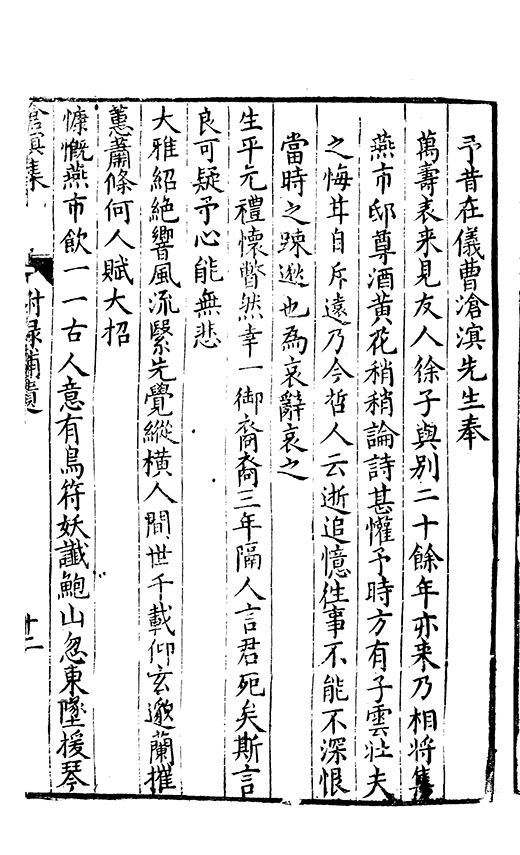 予昔在儀曹滄溟先生奉
萬壽表來見友人徐子與別二十餘年亦來乃相將集
燕市邸尊酒黃花稍稍論詩甚懽予時方有子雲壯夫
之悔耳自斥遠乃今哲人云逝追憶往事不能不深恨
當時之踈逖也為哀辭哀之
生平元禮懷瞥然幸一御裔裔三年隔人言君死矣斯言
良可疑予心能無悲
大雅紹絕響風流緊先覺縱橫人間世千載仰玄邈蘭摧
蕙蕭條何人賦大招
慷慨燕市飲一一古人意有鳥符妖讖鮑山忽東墜援琴
滄溟集
附錄補遺
十二